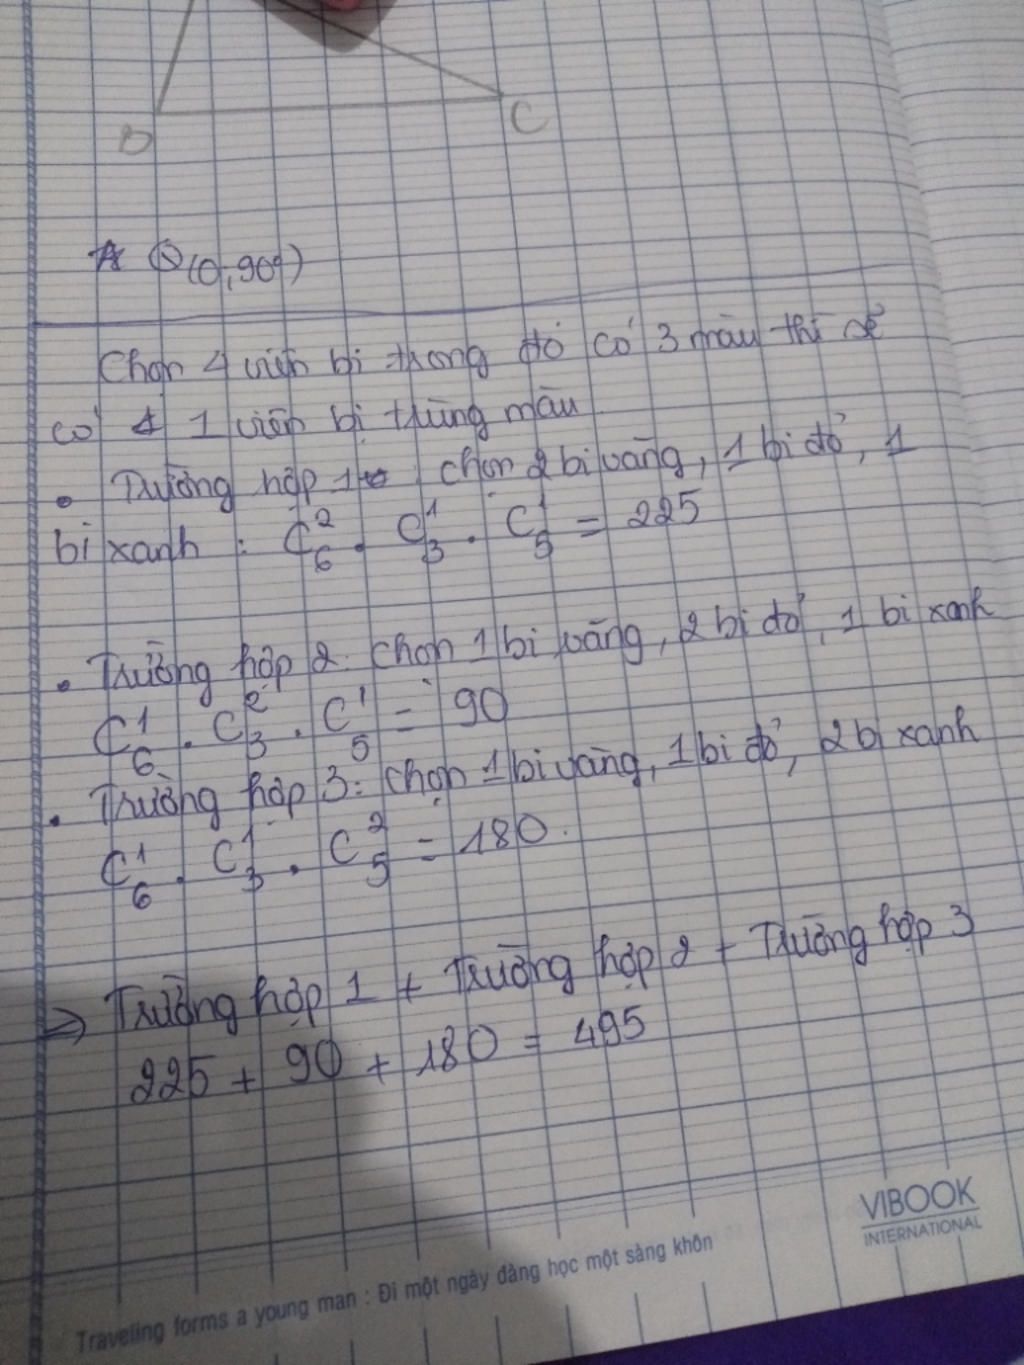 D
C
Q(0,90°)
Chọn 4 viên bi trong đó có 3 màu thì sẽ
có 1 viên bi trùng màu
• Trường hợp 1 : chọn 2 bi vàng, 1 bi đỏ, 1
bi xanh : C²₆ . C¹₃ . C¹₅ = 225
• Trường hợp 2: chọn 1 bi vàng, 2 bi đỏ, 1 bi xanh
C¹₆ . C²₃ . C¹₅ = 90
• Trường hợp 3: chọn 1 bi vàng, 1 bi đỏ, 2 bi xanh
C¹₆ . C¹₃ . C²₅ = 180.
=> Trường hợp 1 + Trường hợp 2 + Trường hợp 3
225 + 90 + 180 = 495
VIBOOK
INTERNATIONAL
Traveling forms a young man : Đi một ngày đàng học một sàng khôn